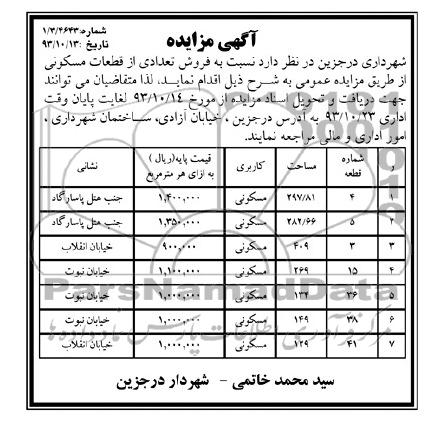 آگهی مزایده
شماره: ۱/۳/۴۶۴۳
تاریخ: ۹۳/۱۰/۱۳
شهرداری درجزین در نظر دارد نسبت به فروش تعدادی از قطعات مسکونی
از طریق مزایده عمومی به شرح ذیل اقدام نماید. لذا متقاضیان می توانند
جهت دریافت و تحویل اسناد مزایده از مورخ ۹۳/۱۰/۱۴ لغایت پایان وقت
اداری ۹۳/۱۰/۲۳ به آدرس درجزین، خیابان آزادی، ساختمان شهرداری،
امور اداری و مالی مراجعه نمایند.
ر شماره قطعه مساحت کاربری قیمت پایه(ریال) به ازای هر مترمربع نشانی
۱ ۴ ۲۹۷/۸۱ مسکونی ۱,۴۰۰,۰۰۰ جنب هتل پاسارگاد
۲ ۵ ۲۸۲/۶۶ مسکونی ۱,۳۵۰,۰۰۰ جنب هتل پاسارگاد
۳ ۳ ۴۰۹ مسکونی ۹۰۰,۰۰۰ خیابان انقلاب
۴ ۱۵ ۲۶۹ مسکونی ۱,۱۰۰,۰۰۰ خیابان نبوت
۵ ۳۶ ۱۳۴ مسکونی ۱,۰۰۰,۰۰۰ خیابان نبوت
۶ ۳۸ ۱۴۹ مسکونی ۱,۰۰۰,۰۰۰ خیابان نبوت
۷ ۴۱ ۱۲۹ مسکونی ۱,۰۰۰,۰۰۰ خیابان انقلاب
ParsNamadData
سید محمد خاتمی - شهردار درجزین